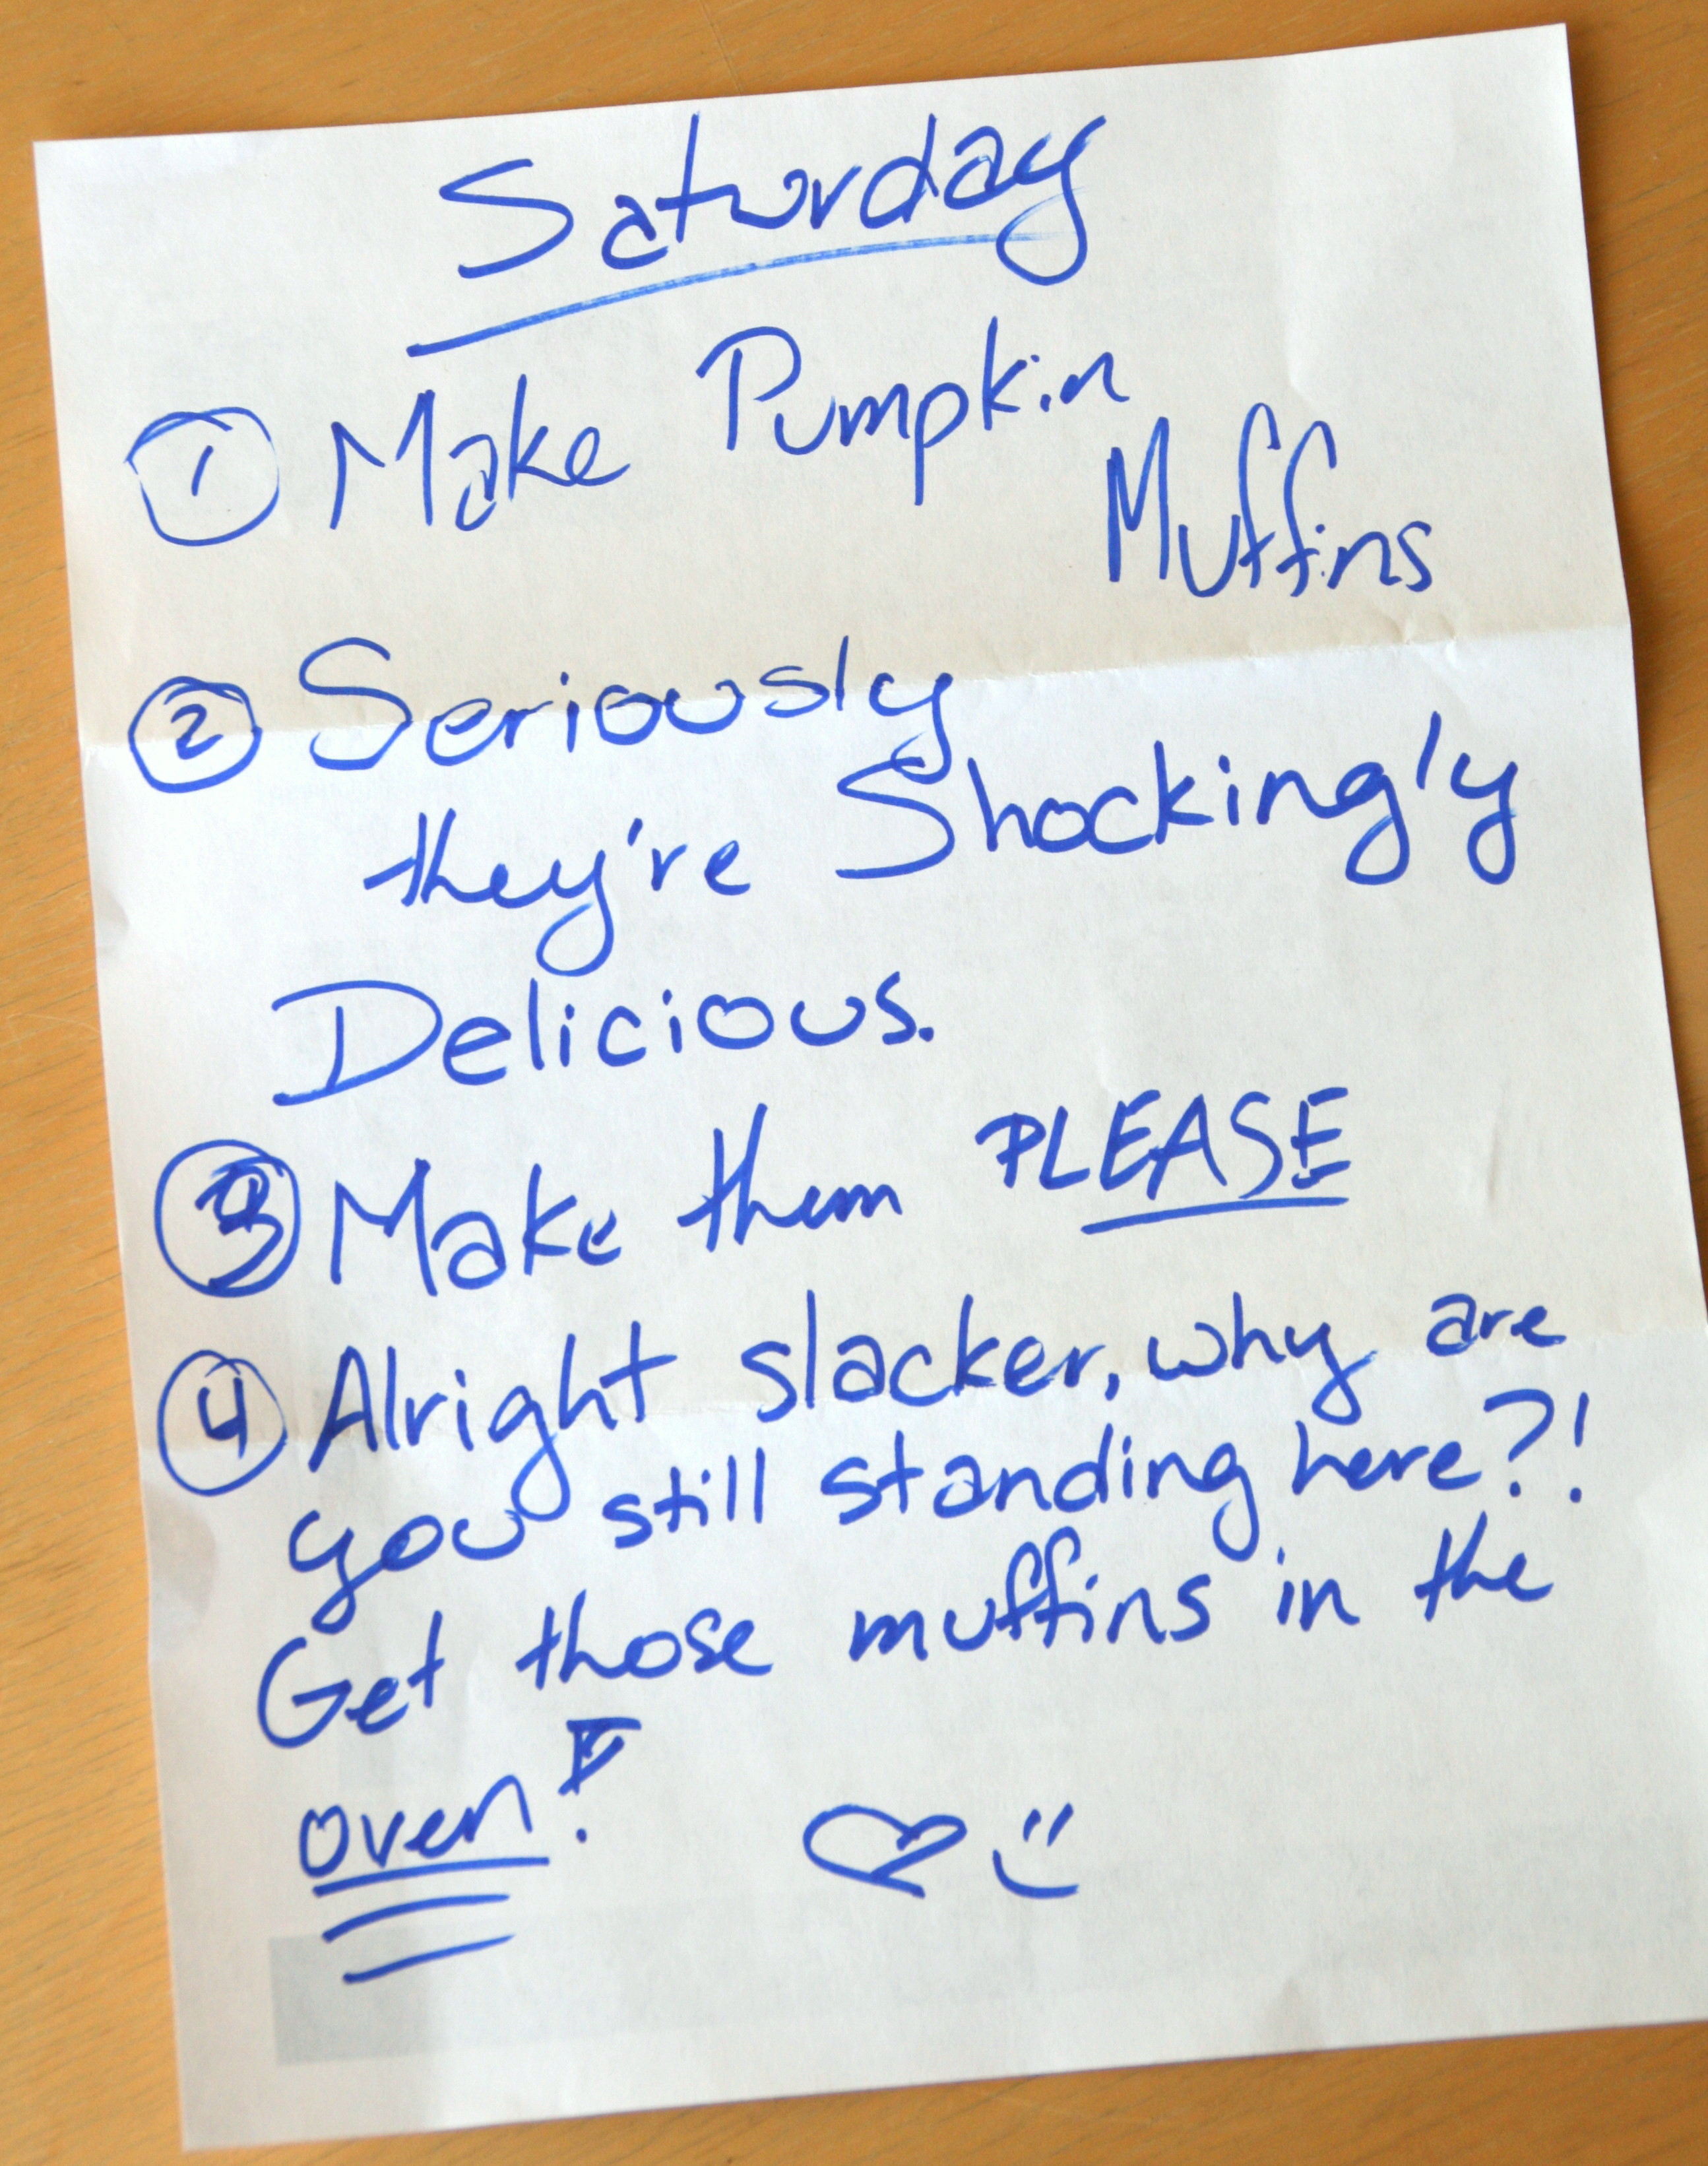 Saturday
① Make Pumpkin
Muffins
② Seriously
they're Shockingly
Delicious.
③ Make them PLEASE
④ Alright slacker, why are
you still standing here?!
Get those muffins in the
oven!